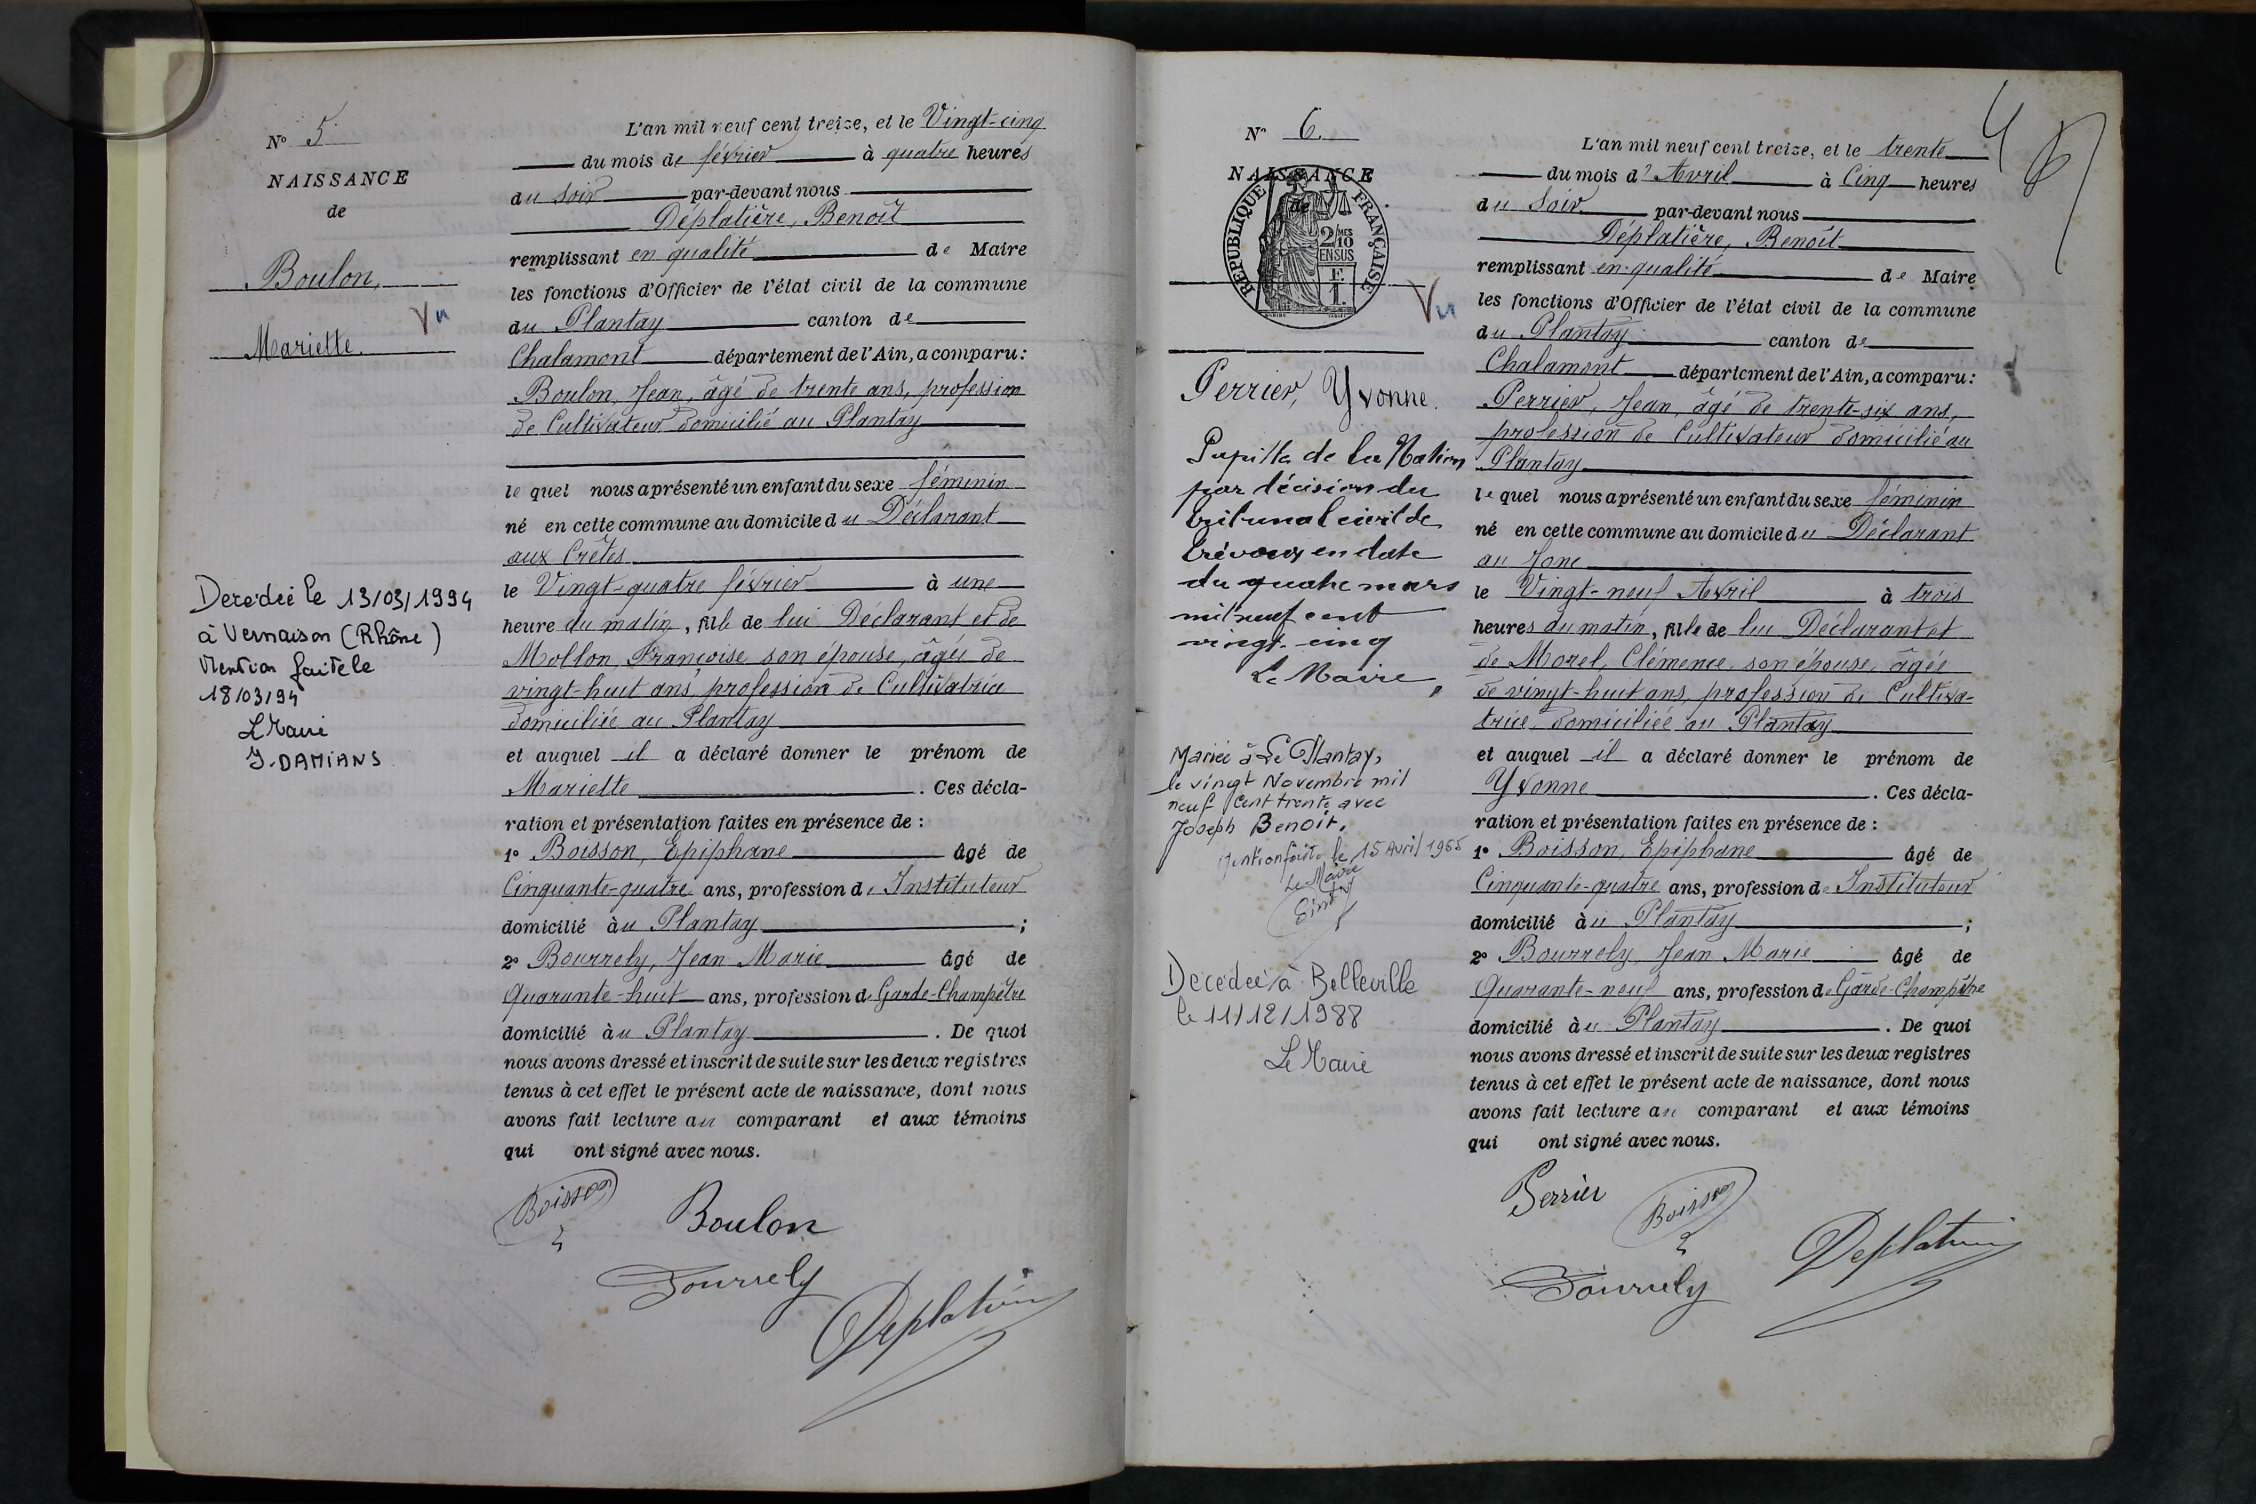 N° 5
NAISSANCE
de
Boulon,
Mariette.
Vu
Décédée le 13/03/1994
à Vernaison (Rhône)
Mention faite le
18/03/94
Le Maire
J. DAMIANS
L'an mil neuf cent treize, et le Vingt-cinq
du mois de février à quatre heures
du soir par-devant nous
Déplatière, Benoît
remplissant en qualité de Maire
les fonctions d'Officier de l'état civil de la commune
du Plantay canton de
Chalamont département de l'Ain, a comparu:
Boulon, Jean, âgé de trente ans, profession
de Cultivateur domicilié au Plantay
le quel nous a présenté un enfant du sexe féminin
né en cette commune au domicile du Déclarant
aux Crêtes
le Vingt-quatre février à une
heure du matin, fille de lui Déclarant et de
Mollon, Françoise son épouse, âgée de
vingt-huit ans, profession de Cultivatrice
domiciliée au Plantay
et auquel il a déclaré donner le prénom de
Mariette. Ces décla-
ration et présentation faites en présence de :
1° Boisson, Epiphane âgé de
Cinquante-quatre ans, profession d'Instituteur
domicilié au Plantay ;
2° Bourrely, Jean Marie âgé de
Quarante-huit ans, profession de Garde-Champêtre
domicilié au Plantay. De quoi
nous avons dressé et inscrit de suite sur les deux registres
tenus à cet effet le présent acte de naissance, dont nous
avons fait lecture au comparant et aux témoins
qui ont signé avec nous.
Boisson Boulon
Bourrely
Deplatière
N° 6.
NAISSANCE
de
RÉPUBLIQUE FRANÇAISE
2/10 MES
EN SUS
F.
1.
Vu
Perrier, Yvonne.
Pupille de la Nation
par décision du
tribunal civil de
Trévoux en date
du quatre mars
mil neuf cent
vingt-cinq
Le Maire
Mariée à Le Plantay,
le vingt Novembre mil
neuf cent trente avec
Joseph Benoît.
Mention faite le 15 Avril 1955
Le Maire
Décédée à Belleville
le 11/12/1988
Le Maire
L'an mil neuf cent treize, et le trente
du mois d'Avril à Cinq heures
du Soir par-devant nous
Déplatière, Benoît
remplissant en qualité de Maire
les fonctions d'Officier de l'état civil de la commune
du Plantay canton de
Chalamont département de l'Ain, a comparu:
Perrier, Jean, âgé de trente-six ans,
profession de Cultivateur domicilié au
Plantay
le quel nous a présenté un enfant du sexe féminin
né en cette commune au domicile du Déclarant
au Jonc
le Vingt-neuf Avril à trois
heures du matin, fille de lui Déclarant et
de Morel, Clémence, son épouse, âgée
de vingt-huit ans, profession de Cultiva-
trice, domiciliée au Plantay
et auquel il a déclaré donner le prénom de
Yvonne. Ces décla-
ration et présentation faites en présence de :
1° Boisson, Epiphane âgé de
Cinquante-quatre ans, profession d'Instituteur
domicilié au Plantay ;
2° Bourrely, Jean Marie âgé de
Quarante-neuf ans, profession de Garde-Champêtre
domicilié au Plantay. De quoi
nous avons dressé et inscrit de suite sur les deux registres
tenus à cet effet le présent acte de naissance, dont nous
avons fait lecture au comparant et aux témoins
qui ont signé avec nous.
Perrier Boisson
Bourrely Deplatière